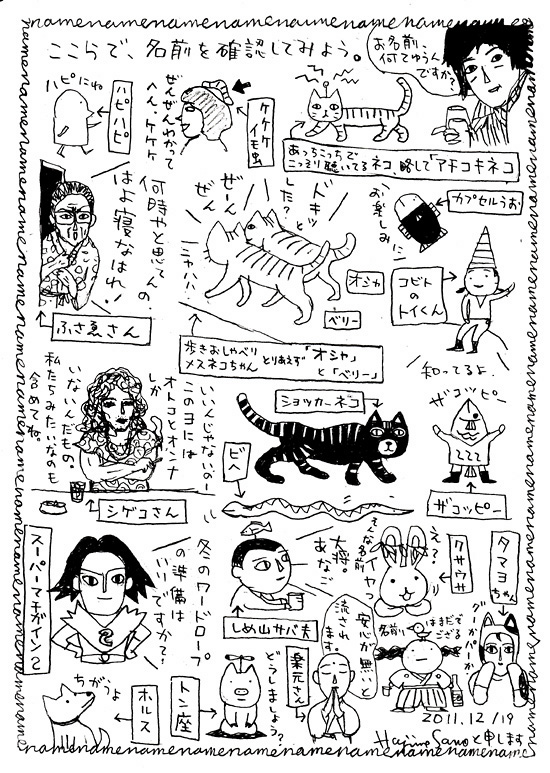 ここらで、名前を確認してみよう。
お名前、
何てゆうん
ですか?
ハピにわ
ハピハピ
ぜんぜんわかって
へん、ケケケ
ケケケ
イモ虫
あっちこっちで
こっそり聴いてるネコ 略して「アチコキネコ」
何時やと思てんの
はよ寝なはれ!
ふさ恵さん
ドキッと
した?
ぜーん
ぜん
ニャハハ
オシャ
ベリー
お楽しみに
カプセルうお
コビト
のト
イくん
歩きおしゃべり
メスネコちゃん とりあえず 「オシャ」
と「ベリー」
知ってるよ、
ザコッピー
ザコッピー
いいんじゃないのー
このヨには
オトコとオンナ
しか
いないんだもの。
私たちみたいなのも
含めてね。
シゲコさん
ショッカーネコ
ビへ
スーパーマチガイン2
冬のワードローブ
の準備は
いいですかて?
大将、
あなご
しめ山サバ夫
え?
そんな名前
イヤッ
クサウサ
タマヨちゃん
グーかパーか
安心が無いと
流されます
楽元さん
名前は
まだで
ござる
ちがうよ
ホルス
トン座
どうしましょう?
2011.12/19
Hajime Sano と申します